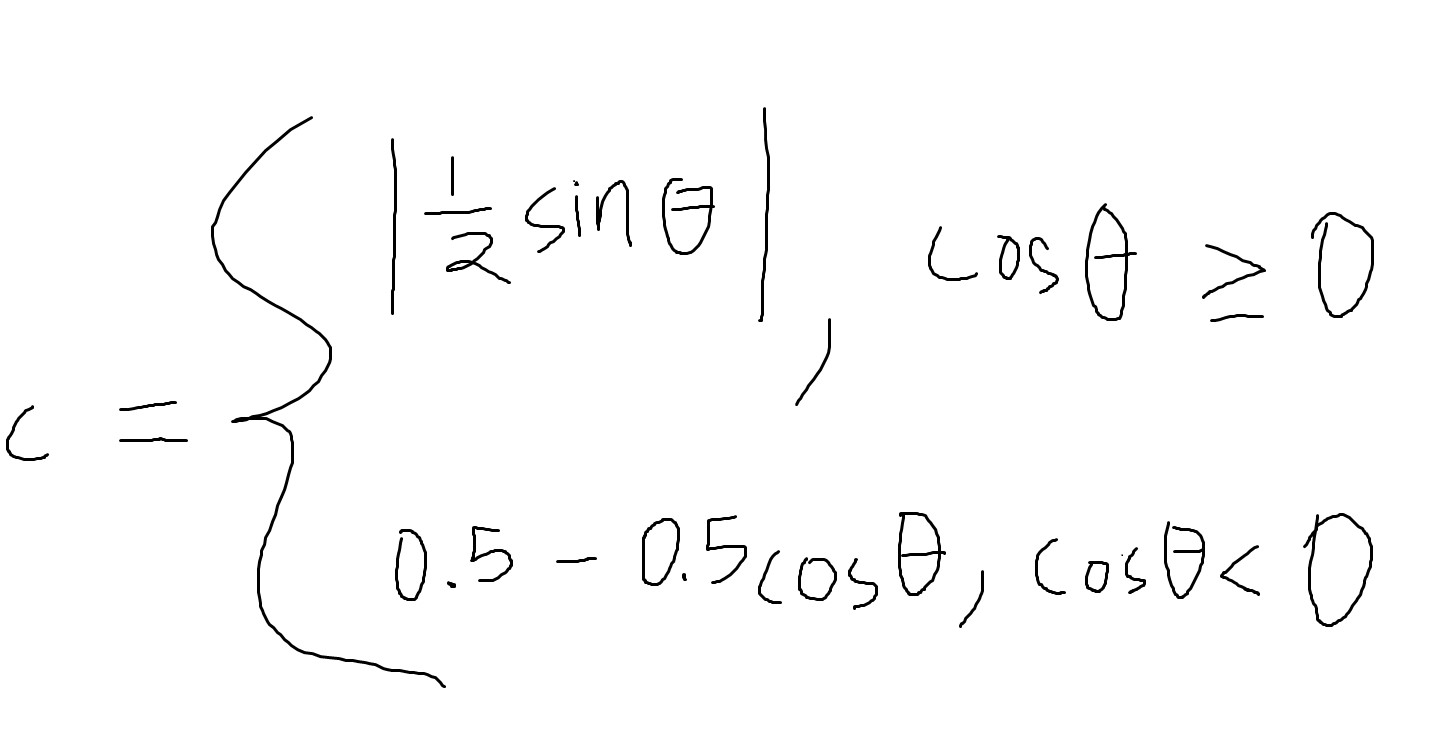 |1/2 sin θ|, cos θ ≥ 0
c = {
0.5 - 0.5 cos θ, cos θ < 0